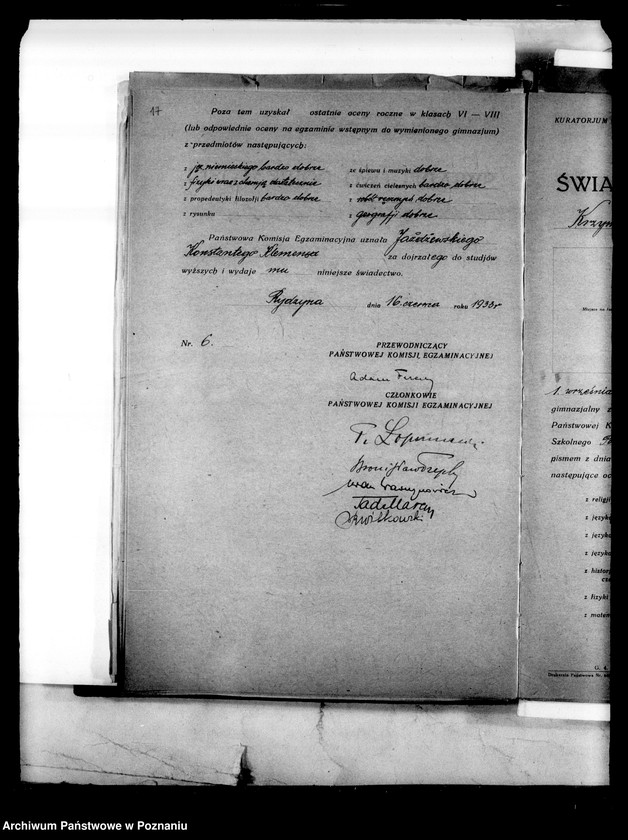 17
Poza tem uzyskał ostatnie oceny roczne w klasach VI — VIII
(lub odpowiednie oceny na egzaminie wstępnym do wymienionego gimnazjum)
z przedmiotów następujących:
z jęz. niemieckiego bardzo dobrze
ze śpiewu i muzyki dobrze
z fizyki wraz z chemją dostatecznie
z ćwiczeń cielesnych bardzo dobrze
z propedeutyki filozofji bardzo dobrze
z robót ręcznych dobrze
z rysunku
z geografji dobrze
Państwowa Komisja Egzaminacyjna uznała Jażdżewskiego
Konstantego Klemensa za dojrzałego do studjów
wyższych i wydaje mu niniejsze świadectwo.
Rydzyna dnia 16 czerwca roku 1933 r
Nr. 6.
PRZEWODNICZĄCY
PAŃSTWOWEJ KOMISJI EGZAMINACYJNEJ
Adam
CZŁONKOWIE
PAŃSTWOWEJ KOMISJI EGZAMINACYJNEJ
Kwiłkowski
KURATORJUM
ŚWIA
Krzym
Miejsce na
1. września
gimnazjalny z
Państwowej K
Szkolnego
pismem z dnia
następujące oc
z religji
z języka
z języka
z języka
z histor
z fizyki
z matem
Drukarnia Państwowa Nr.
Archiwum Państwowe w Poznaniu